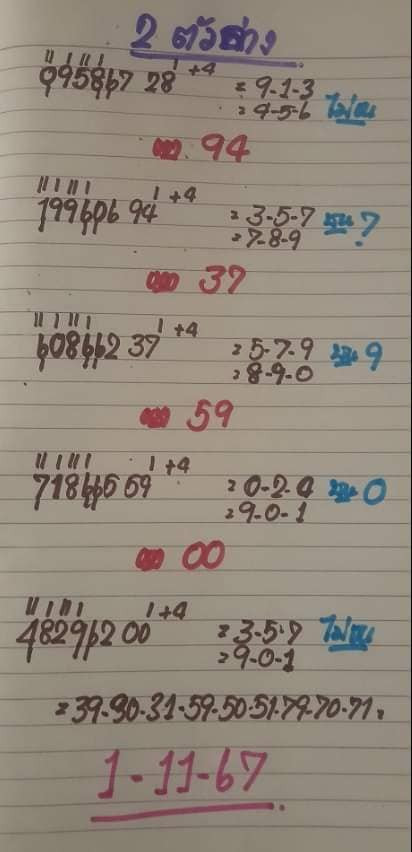 2 ตัวล่าง
095867 28 +4 = 9-1-3
= 4-5-6 ไม่ชน
ผล 94
199606 94 +4 = 3-5-7
= 7-8-9 ชน 7
ผล 37
608662 37 +4 = 5-7-9
= 8-9-0 ชน 9
ผล 59
718665 59 +4 = 0-2-4
= 9-0-1 ชน 0
ผล 00
482962 00 +4 = 3-5-7
= 9-0-1 ไม่ชน
= 39-30-31-59-50-51-79-70-71.
1-11-67